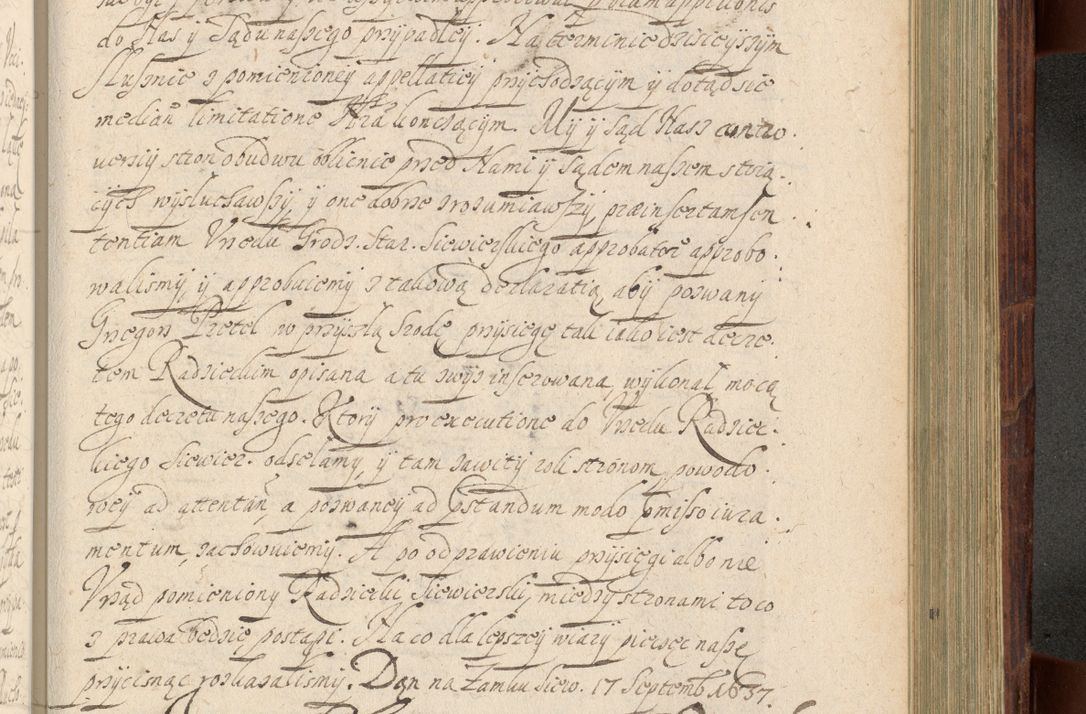 do Nas y Sądu naszego przypadłey. Na terminie dzisieyszym
słusznie z pomienioney appellatiey przychodzącym y dotąd sie
median limitatione kończącym. My y Sąd Nasz contro
uersiy stron obudwu oblicnie przed Nami y Sądem naszem stoią
cych wysłuchawszy, y one dobrze zrozumiawszy, præinsertam sen
tentiam Vrzedu Grodz. Star. Siewierskiego approbatōe approbo
walismy, y approbuiemy z takową declaratią, aby pozwany
Grzegorz Pretel w przyszłą srodę przysięgę tak iako iest decre
tem Radzieckim opisana a tu zwysz inserowana, wykonał mocą
tego decretu naszego. Ktory pro executione do Vrzedu Radziec
kiego Siewier. odsełamy, y tam zawity rok stronom, powodo
wey ad attentan, a pozwaney ad pstandum modo pmisso iura
mentum, zachowuiemy. A po odprawieniu przysięgi albo nie
Vrząd pomieniony Radziecki Siewierski, między stronami to co
z prawa bedzie postąpi. Na co dla lepszey wiary pieczęc naszę
przycisnąc roskazalismy. Dan na Zamku Siew. 17 Septemb. 1637.